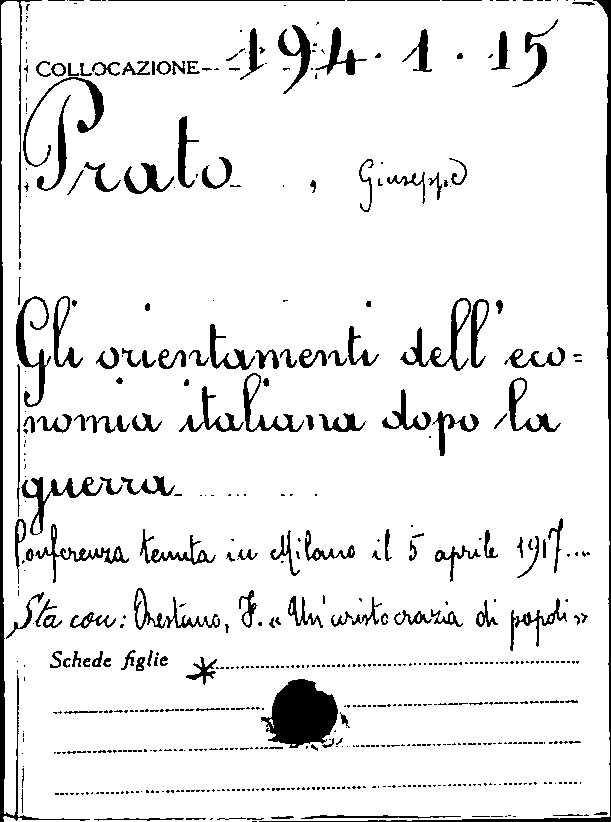 COLLOCAZIONE 194.1.15
Prato, Giuseppe
Gli orientamenti dell'eco=
nomia italiana dopo la
guerra
Conferenza tenuta in Milano il 5 aprile 1917...
Sta con: Orestano, F. « Un'aristocrazia di popoli »
Schede figlie *